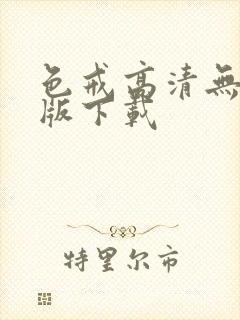 色戒高清無
版下載
特里尔市